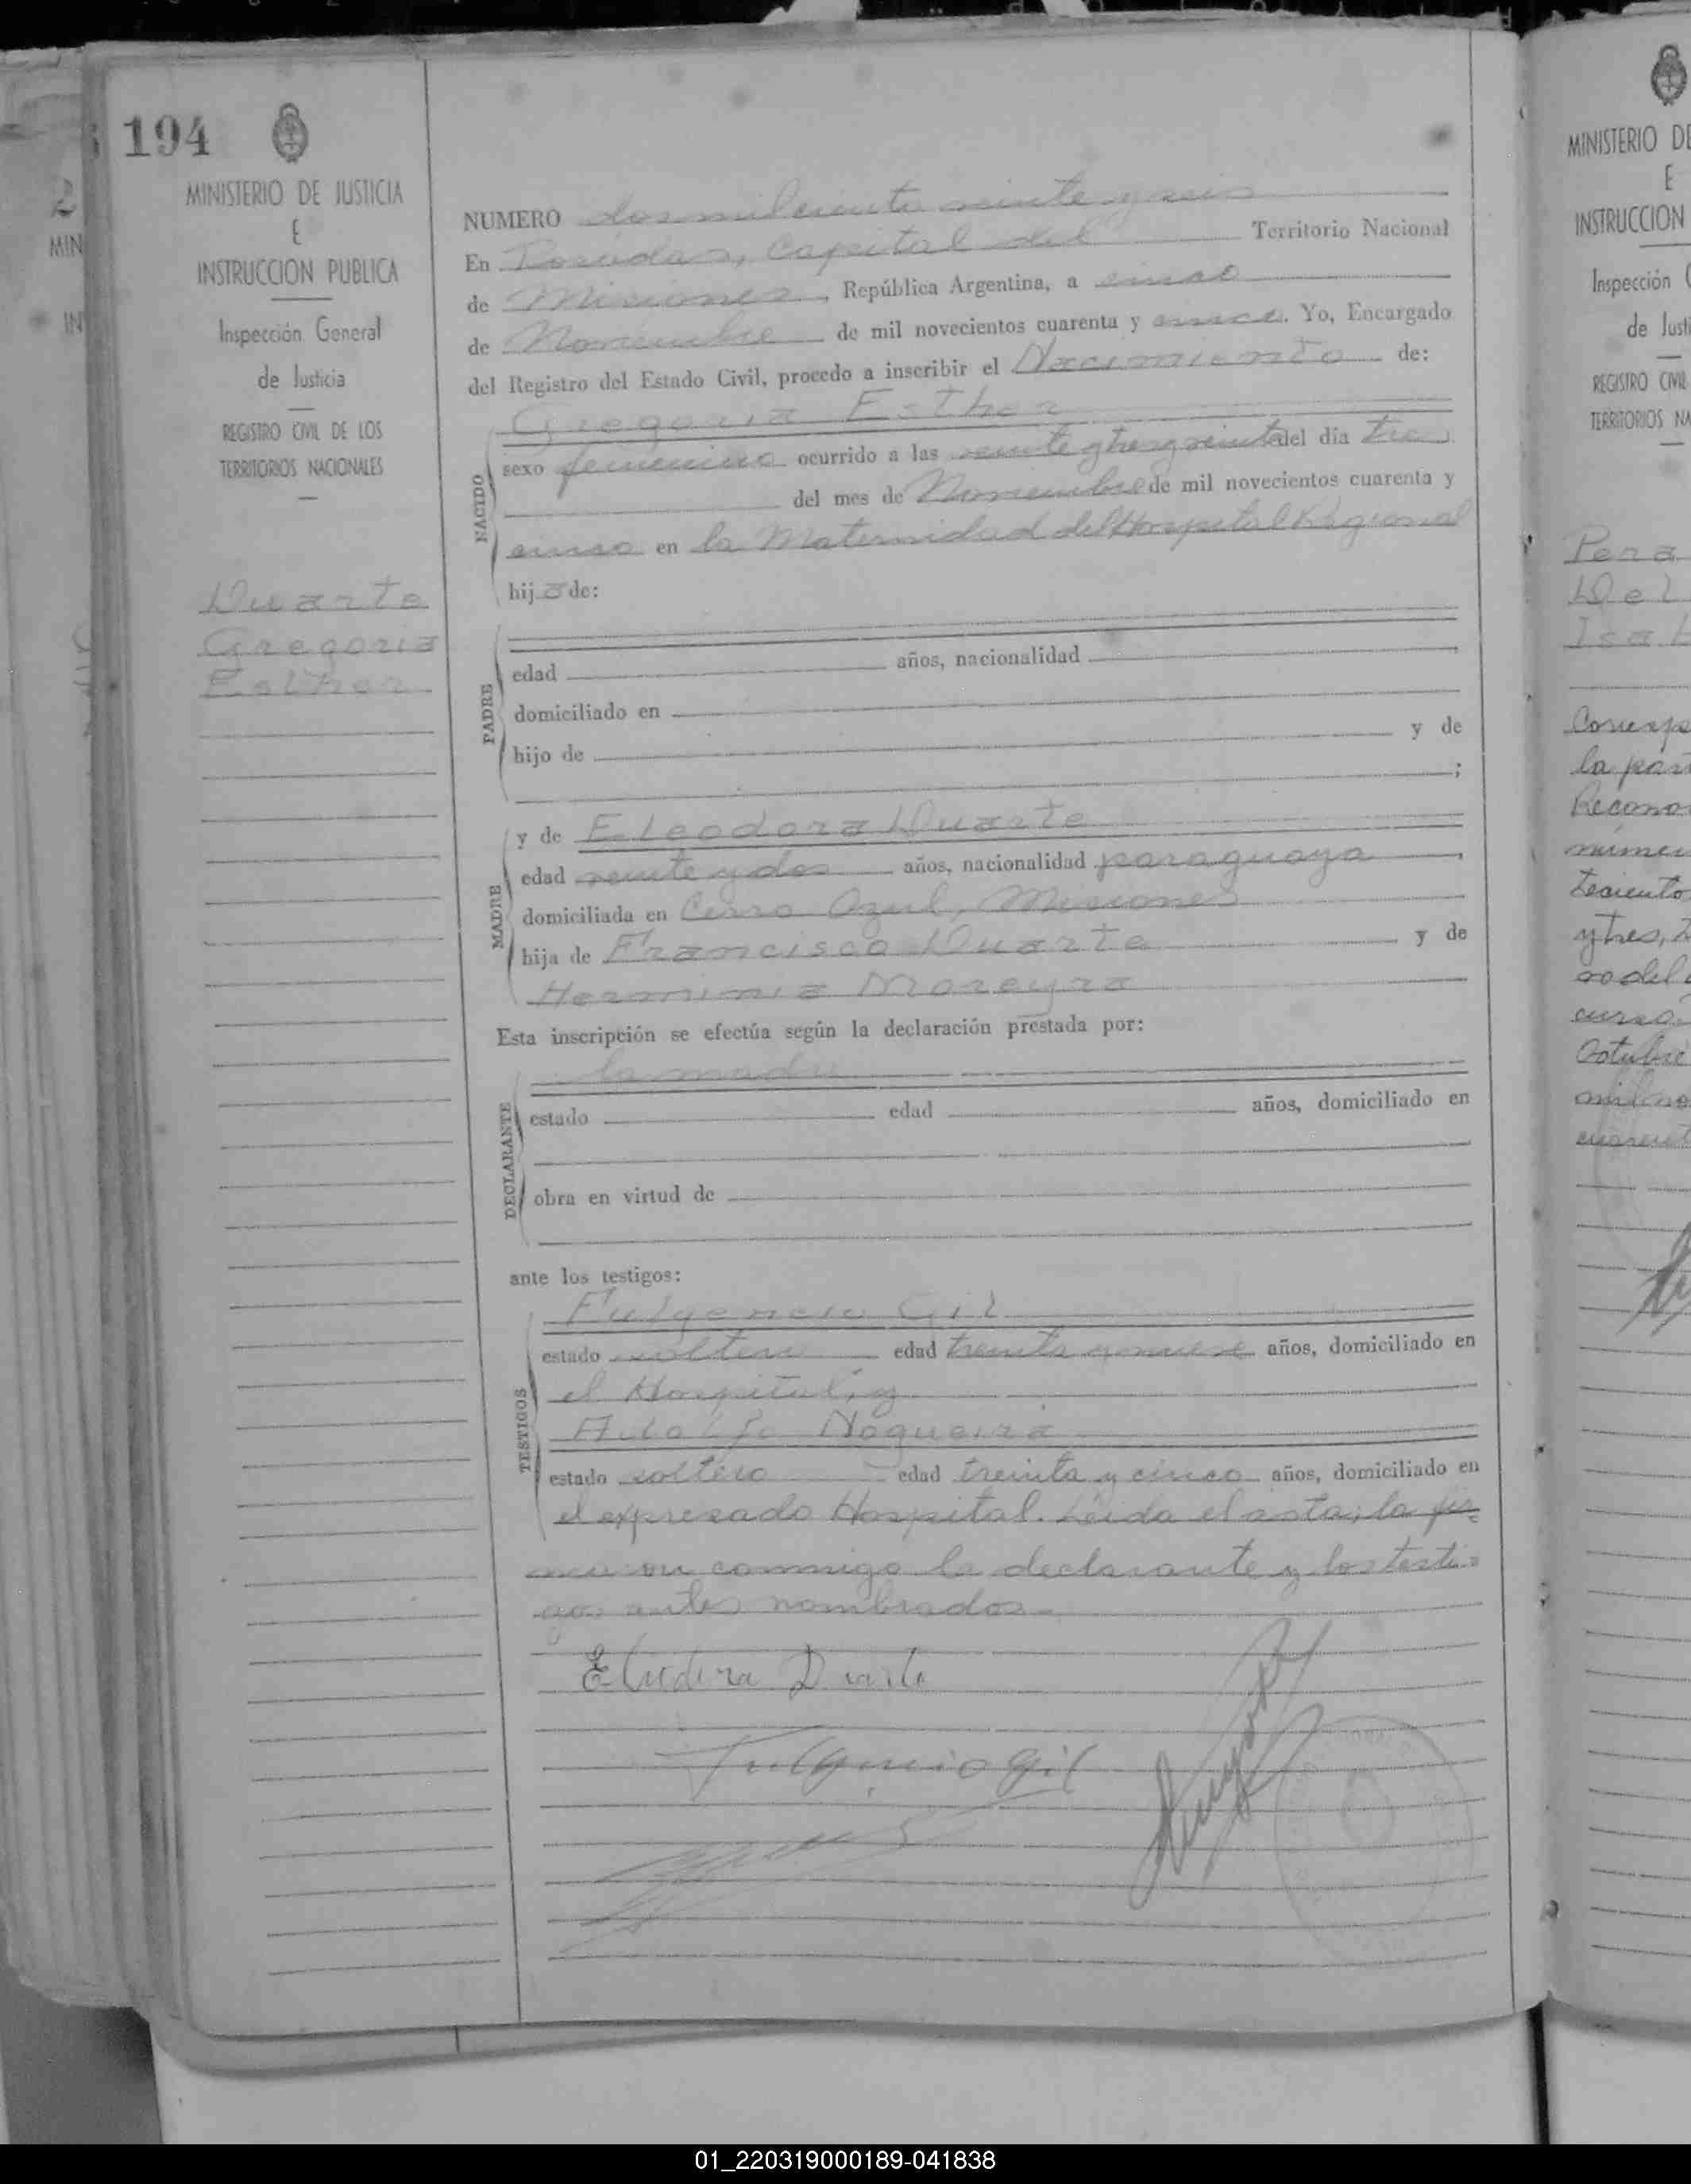 194
MINISTERIO DE JUSTICIA
E
INSTRUCCION PUBLICA
Inspección General
de Justicia
REGISTRO CIVIL DE LOS
TERRITORIOS NACIONALES
Duarte
Gregoria
Esther
NUMERO dos mil ciento veinte y seis
En Posadas, Capital del Territorio Nacional
de Misiones, República Argentina, a cinco
de Noviembre de mil novecientos cuarenta y cinco. Yo, Encargado
del Registro del Estado Civil, procedo a inscribir el Nacimiento de:
NACIDO
Gregoria Esther
sexo femenino ocurrido a las veinte y tres y veinte del día tres
del mes de Noviembre de mil novecientos cuarenta y
cinco en la Maternidad del Hospital Regional
hija de:
PADRE
edad años, nacionalidad
domiciliado en
hijo de y de
;
MADRE
y de Eleodora Duarte
edad veinte y dos años, nacionalidad paraguaya
domiciliada en Cerro Azul, Misiones
hija de Francisco Duarte y de
Herminia Moreyra
Esta inscripción se efectúa según la declaración prestada por:
DECLARANTE
la madre
estado edad años, domiciliado en
obra en virtud de
ante los testigos:
TESTIGOS
Fulgencio Gil
estado soltero edad treinta y nueve años, domiciliado en
el Hospital, y
Adolfo Nogueira
estado soltero edad treinta y cinco años, domiciliado en
el expresado Hospital. Leída el acta, la fir-
maron conmigo la declarante y los testi-
gos antes nombrados.-
Eludora Duarte
Fulgencio Gil
MINISTERIO DE
E
INSTRUCCION
Inspección
de Justi
REGISTRO CIVIL
TERRITORIOS NA
Pera
Del
Isab
la par
Recono
númer
y tres,
ro del
curso.
Octubre
01_220319000189-041838